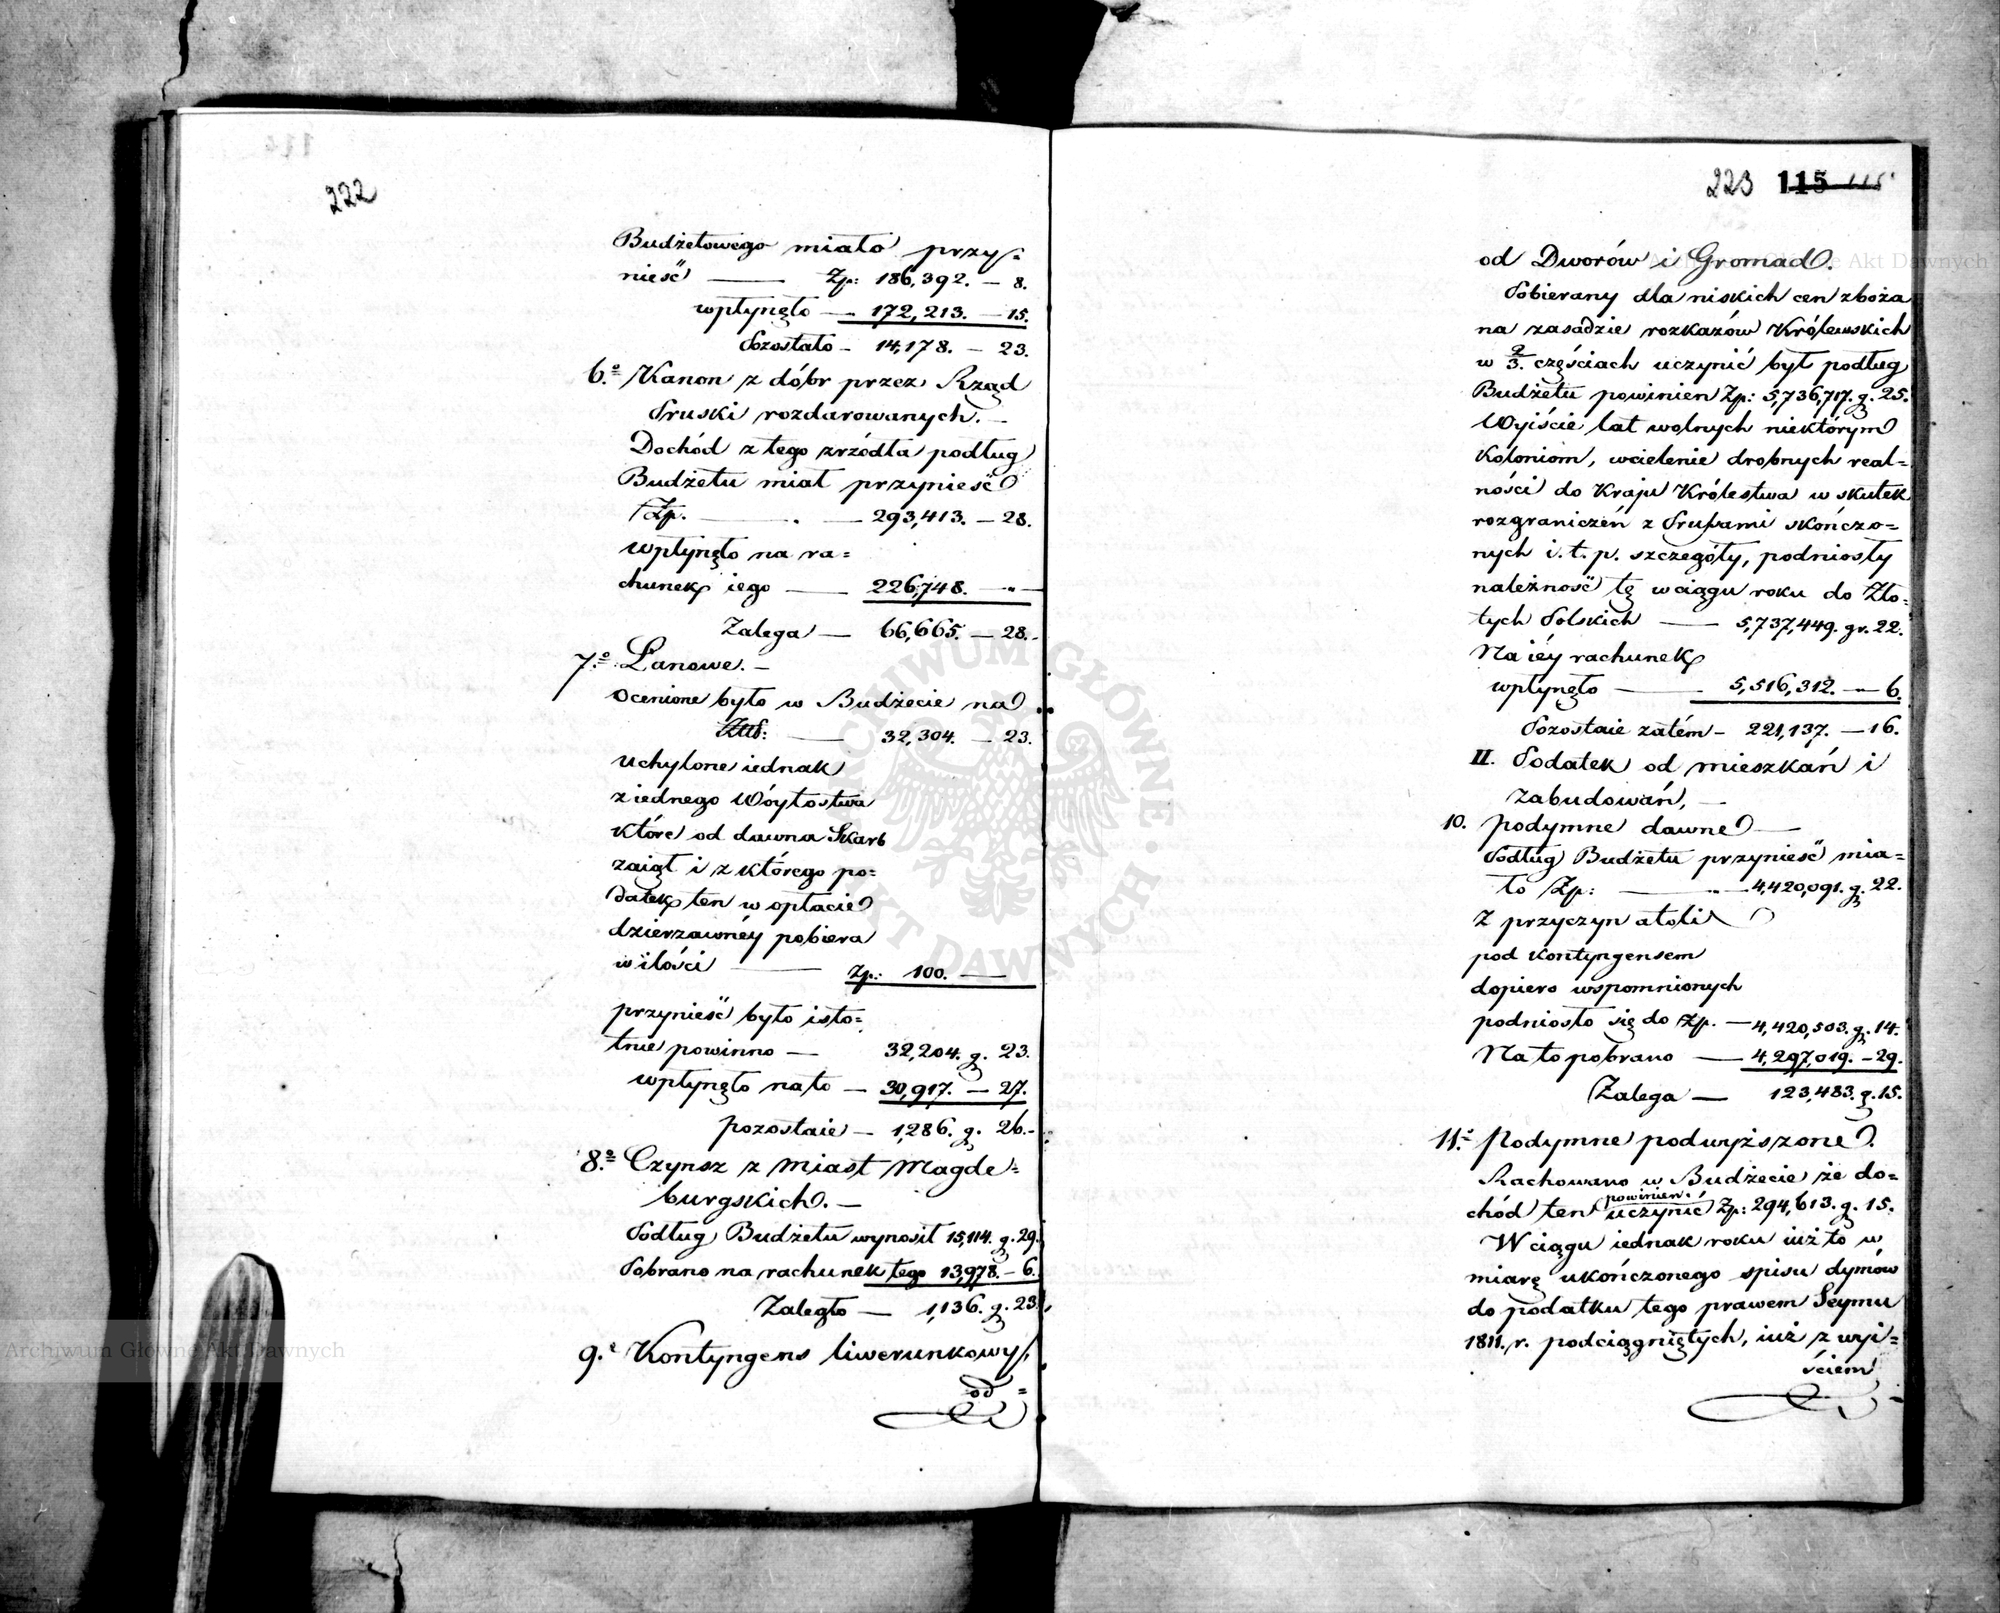 222
Budżetowego miało przy=
nieść — Zp: 186,392. — 8.
wpłynęło — 172,213. — 15.
Pozostało — 14,178. — 23.
6.° Kanon z dóbr przez Rząd
Pruski rozdarowanych. —
Dochód z tego zrzódła podług
Budżetu miał przynieść
Zp. — 293,413. — 28.
wpłynęło na ra=
chunek iego — 226,748. — " —
Zalega — 66,665. — 28. -
7.° Łanowe. —
Ocenione było w Budżecie na
— 32,304. — 23.
Uchylone iednak
z iednego Wóytostwa
które od dawna Skarb
zaiął i z którego po=
datek ten w opłacie
dzierzawnéy pobiera
w ilości — Zp: 100. —
przynieść było isto=
tnie powinno — 32,204. g. 23.
wpłynęło na to — 30,917. — 27.
pozostaie — 1,286. g. 26. -
8.° Czynsz z Miast Magde=
burgskich. —
Podług Budżetu wynosił 15,114. g. 29.
Pobrano na rachunek tego 13,978. — 6.
Zaległo — 1,136. g. 23.
9.° Kontyngens liwerunkowy
od =
223 115 115
od Dworów i Gromad.
Pobierany dla niskich cen zboża
na zasadzie rozkazów Królewskich
w 2/3. częściach uczynić był podług
Budżetu powinien Zp: 5,736,717. g. 25.
Wyiście lat wolnych niektórym
Koloniom, wcielenie drobnych real=
ności do Kraju Królestwa w skutek
rozgraniczeń z Prussami skończo=
nych i. t. p. szczegóły, podniosły
należność tę w ciągu roku do Zło=
tych Polskich — 5,737,449. gr. 22.
Na iéy rachunek
wpłynęło — 5,516,312. — 6.
Pozostaie zatém — 221,137. — 16.
II. Podatek od mieszkań i
zabudowań, —
10. Podymne dawne —
Podług Budżetu przynieść mia=
ło Zp: — " — 4,420,091. g. 22.
Z przyczyn atoli
pod Kontyngensem
dopiero wspomnionych
podniosło się do Zp. — 4,420,503. g. 14.
Na to pobrano — 4,297,019. — 29.
Zalega — 123,483. g. 15.
11.° Podymne podwyższone.
Rachowano w Budżecie że do=
powinien
chód ten uczynić Zp: 294,613. g. 15.
W ciągu iednak roku iuż to w
miarę ukończonego spisu dymów
do podatku tego prawem Seymu
1811. r. podciągniętych, iuż z wyi=
ściem
Archiwum Główne Akt Dawnych
Archiwum Główne Akt Dawnych
ARCHIWUM GŁÓWNE AKT DAWNYCH